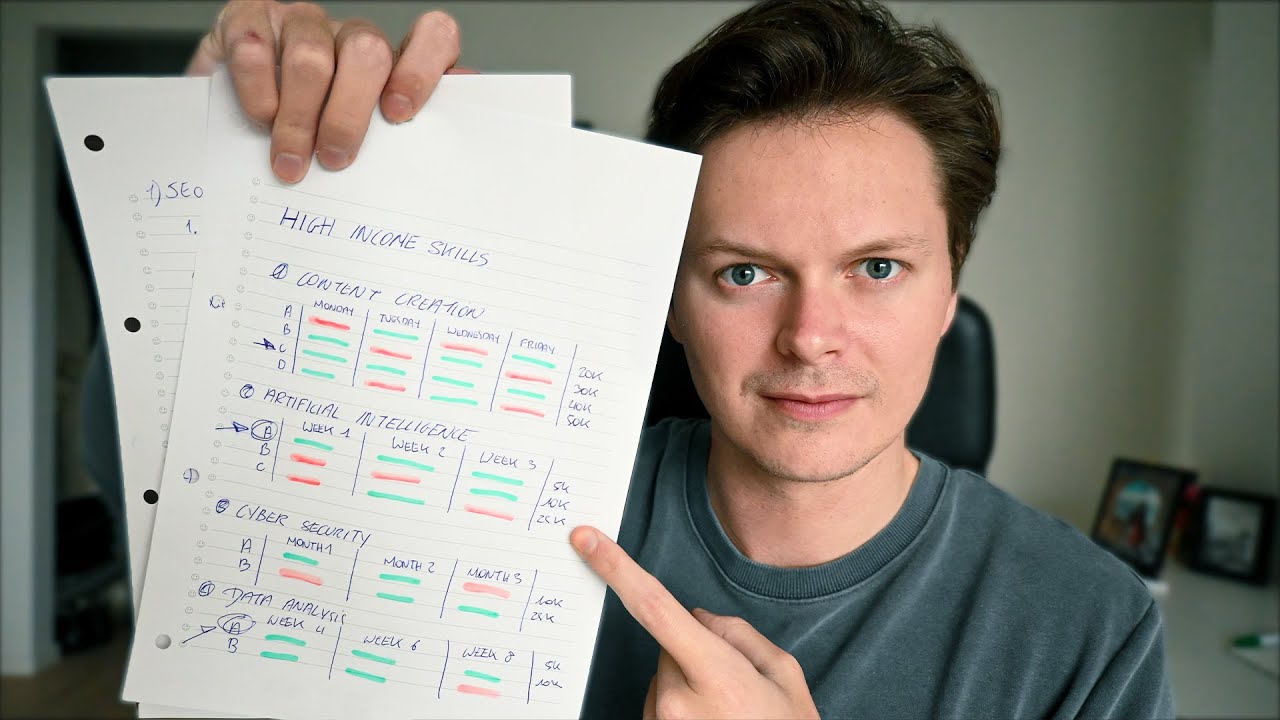 1) SEO
1.
HIGH INCOME SKILLS
1 CONTENT CREATION
MONDAY TUESDAY WEDNESDAY FRIDAY
A
B
C
D
20K
30K
40K
50K
2 ARTIFICIAL INTELLIGENCE
WEEK 1 WEEK 2 WEEK 3
A
B
C
5K
10K
25K
3 CYBER SECURITY
MONTH 1 MONTH 2 MONTH 3
A
B
10K
25K
4 DATA ANALYSIS
WEEK 4 WEEK 6 WEEK 8
A
B
5K
10K